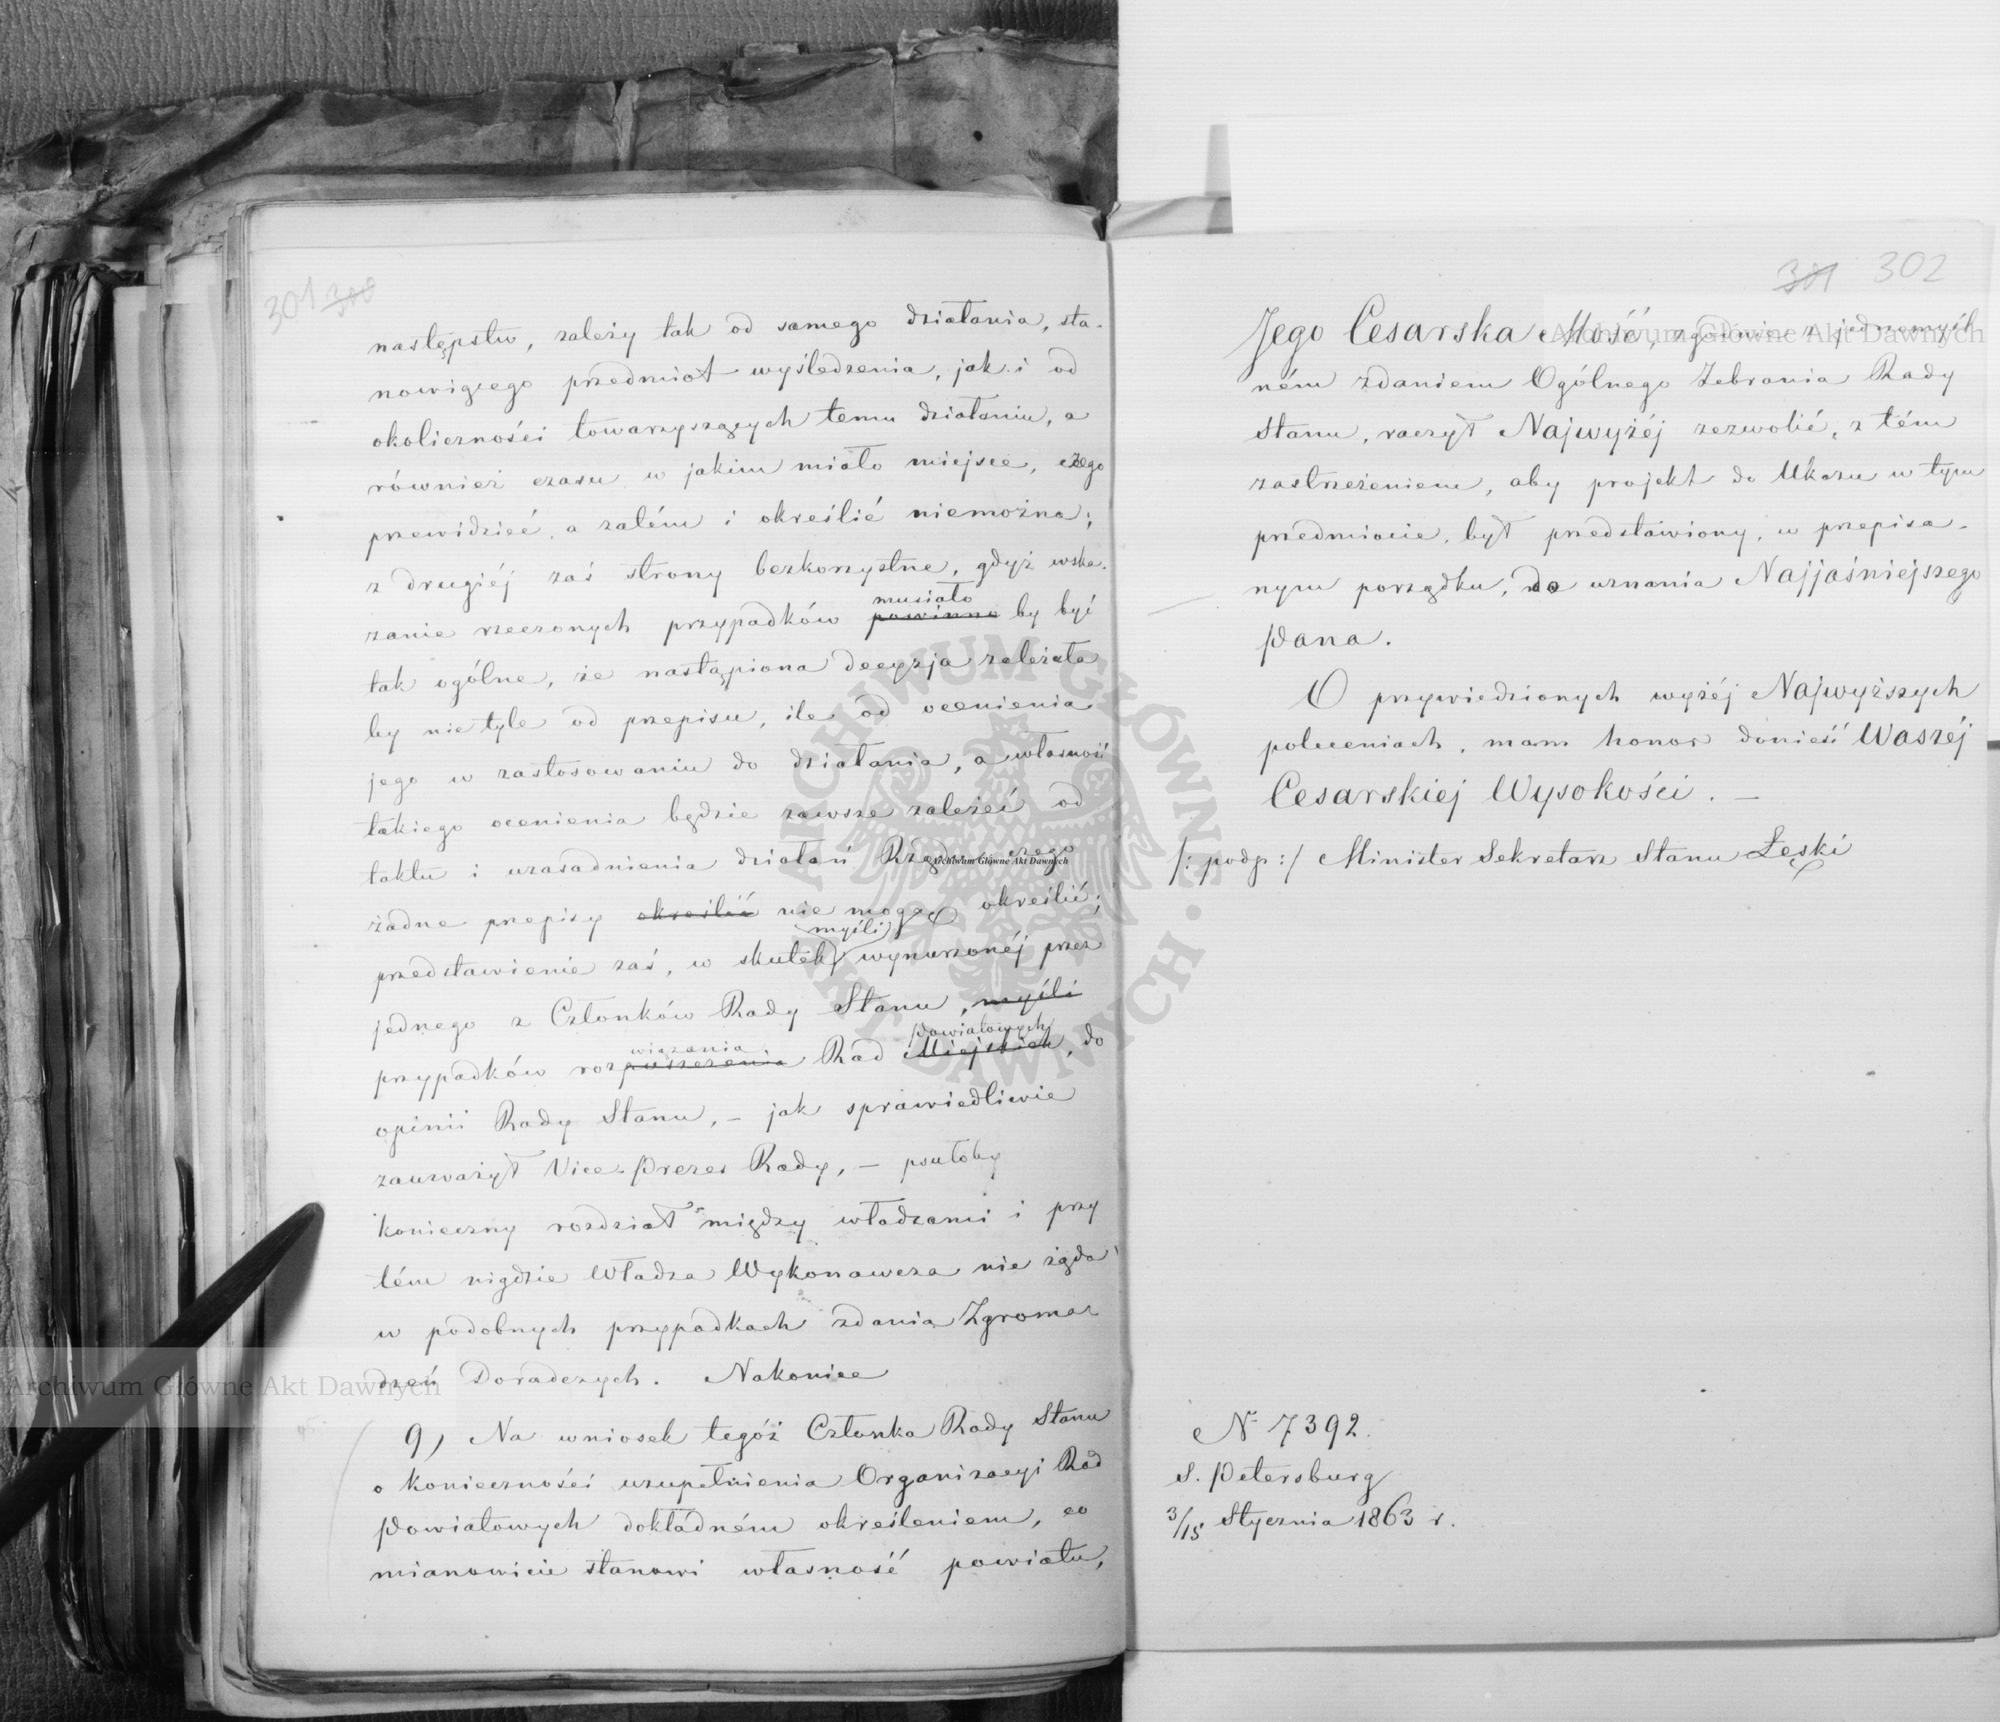 301 ~~300~~
następstw, zależy tak od samego działania, sta-
nowiącego przedmiot wyśledzenia, jak i od
okoliczności towarzyszących temu działaniu, a
również czasu w jakim miało miejsce, czego
przewidzieć, a zatém i określić niemożna;
z drugiéj zaś strony bezkorzystne, gdyż wska-
musiało
zanie rzeczonych przypadków ~~powinno~~ by być
tak ogólne, że nastąpiona decyzja zależała
by nie tyle od przepisu, ile od ocenienia
jego w zastosowaniu do działania, a własność
takiego ocenienia będzie zawsze zależeć od
taktu i uzasadnienia działań Rządu, czego
żadne przepisy ~~określić~~ nie mogą określić;
myśli
przedstawienie zaś, w skutek wynurzonéj przez
jednego z Członków Rady Stanu, ~~myśli~~
wiązania Powiatowych
przypadków roz~~puszczenia~~ Rad ~~Miejskich~~, do
opinii Rady Stanu, – jak sprawiedliwie
zauważył Vice-Prezes Rady, – psułoby
konieczny rozdział między władzami i przy
tém nigdzie Władza Wykonawcza nie żąda
w podobnych przypadkach zdania Zgroma-
dzeń Doradczych. Nakoniec
9, Na wniosek tegóż Członka Rady Stanu
o konieczności uzupełnienia Organizacyi Rad
Powiatowych dokładném określeniem, co
mianowicie stanowi własność powiatu,
~~301~~ 302
Jego Cesarska Mość, zgodnie z jednomyśl
ném zdaniem Ogólnego Zebrania Rady
Stanu, raczył Najwyżéj zezwolić, z tém
zastrzeżeniem, aby projekt do Ukazu w tym
przedmiocie, był przedstawiony, w przepisa-
nym porządku, do uznania Najjaśniejszego
Pana.
O przywiedzionych wyżéj Najwyższych
poleceniach, mam honor donieść Waszéj
Cesarskiej Wysokości. –
/: podp :/ Minister Sekretarz Stanu Łęski
N 7392.
S. Petersburg
3/15 Stycznia 1863 r.
Archiwum Główne Akt Dawnych
Archiwum Główne Akt Dawnych
Archiwum Główne Akt Dawnych
ARCHIWUM GŁÓWNE AKT DAWNYCH